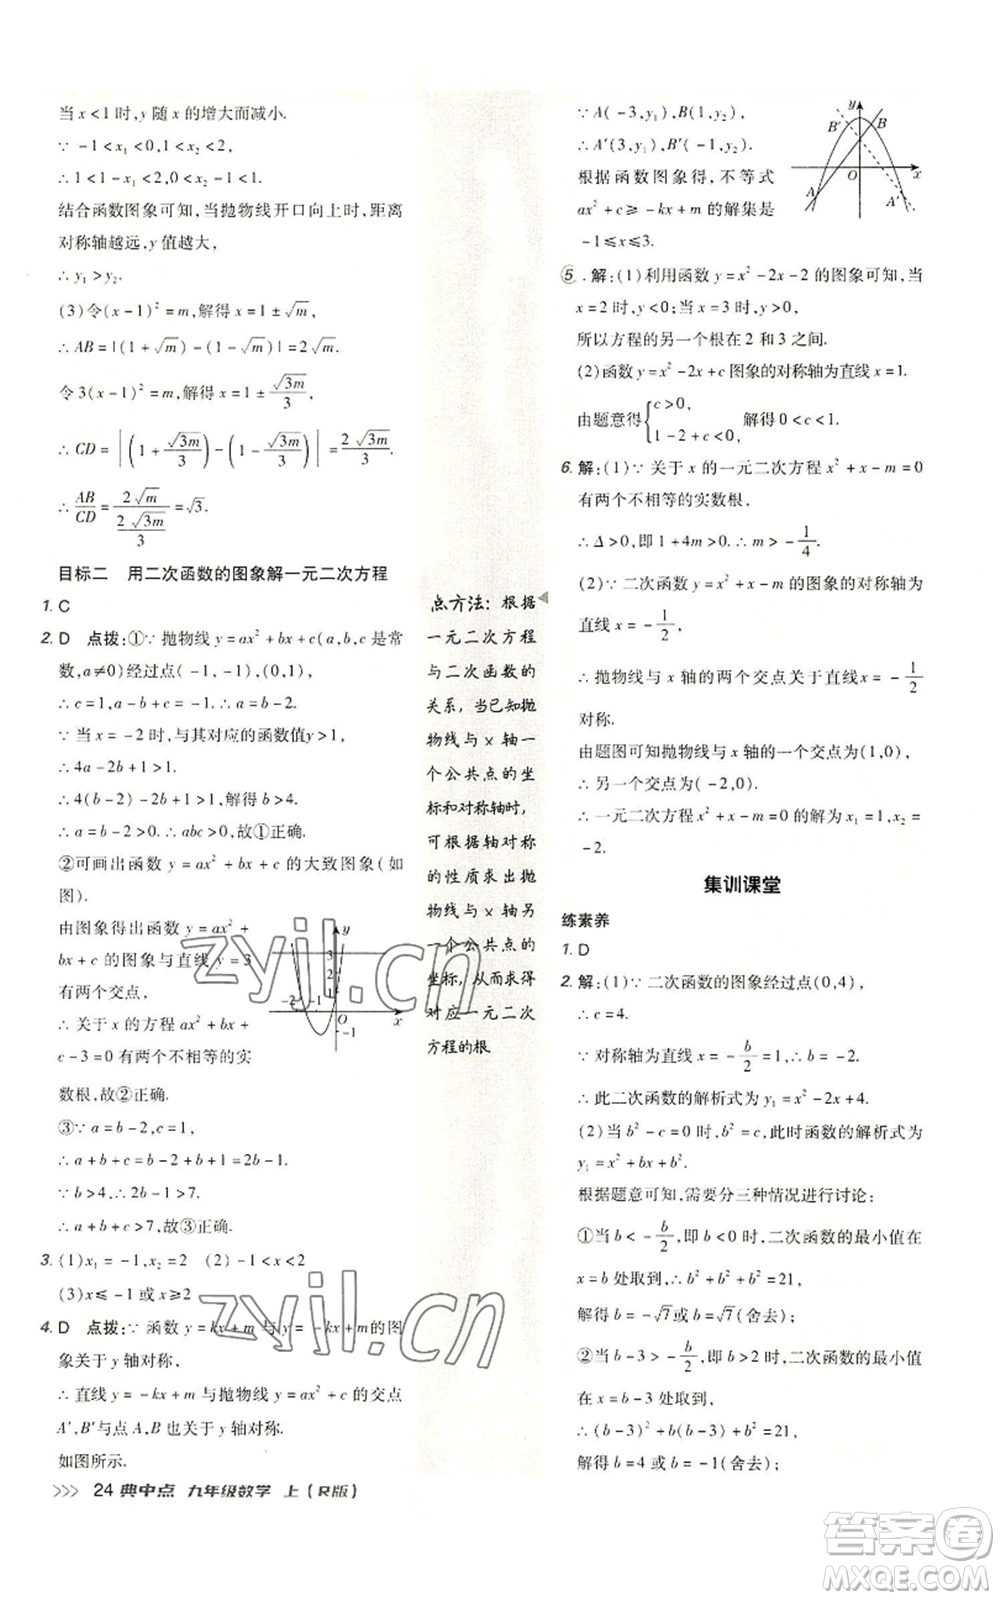 当 x<1 时,y 随 x 的增大而减小.
∵ -1<x₁<0,1<x₂<2,
∴ 1<1-x₁<2,0<x₂-1<1,
结合函数图象可知,当抛物线开口向上时,距离
对称轴越远,y 值越大,
∴ y₁>y₂.
(3)令(x-1)²=m,解得 x=1±√m,
∴ AB=|(1+√m)-(1-√m)|=2√m.
令 3(x-1)²=m,解得 x=1±√3m/3,
∴ CD=|(1+√3m/3)-(1-√3m/3)|=2√3m/3.
∴ AB/CD=2√m/(2√3m/3)=√3.
目标二 用二次函数的图象解一元二次方程
1. C
2. D 点拨:①∵ 抛物线 y=ax²+bx+c(a,b,c 是常
数,a≠0)经过点(-1,-1),(0,1),
∴ c=1,a-b+c=-1. ∴ a=b-2.
∵ 当 x=-2 时,与其对应的函数值y>1,
∴ 4a-2b+1>1.
∴ 4(b-2)-2b+1>1,解得 b>4.
∴ a=b-2>0. ∴ abc>0,故①正确.
②可画出函数 y=ax²+bx+c 的大致图象(如
图).
由图象得出函数 y=ax²+
bx+c 的图象与直线 y=3
有两个交点,
∴ 关于 x 的方程 ax²+bx+
c-3=0 有两个不相等的实
数根,故②正确.
③∵ a=b-2,c=1,
∴ a+b+c=b-2+b+1=2b-1.
∵ b>4,∴ 2b-1>7.
∴ a+b+c>7,故③正确.
y
3
2
1
-2
-1
O
x
-1
3. (1)x₁=-1,x₂=2 (2)-1<x<2
(3)x≤-1 或 x≥2
4. D 点拨:∵ 函数 y=kx+m 与 y=-kx+m的图
象关于 y 轴对称,
∴ 直线 y=-kx+m 与抛物线 y=ax²+c 的交点
A′,B′与点 A,B 也关于 y 轴对称.
如图所示.
点方法:根据
一元二次方程
与二次函数的
关系,当已知抛
物线与 x 轴一
个公共点的坐
标和对称轴时,
可根据轴对称
的性质求出抛
物线与 x 轴另
一个公共点的
坐标,从而求得
对应一元二次
方程的根
∵ A(-3,y₁),B(1,y₂),
∴ A′(3,y₁),B′(-1,y₂).
根据函数图象得,不等式
ax²+c≥-kx+m 的解集是
-1≤x≤3.
y
B′
B
O
x
A
A′
5. 解:(1)利用函数 y=x²-2x-2 的图象可知,当
x=2 时,y<0;当 x=3 时,y>0,
所以方程的另一个根在 2 和 3 之间.
(2)函数 y=x²-2x+c 图象的对称轴为直线 x=1.
由题意得{c>0, 1-2+c<0, 解得 0<c<1.
6. 解:(1)∵ 关于 x 的一元二次方程 x²+x-m=0
有两个不相等的实数根,
∴ Δ>0,即 1+4m>0. ∴ m>-1/4.
(2)∵ 二次函数 y=x²+x-m 的图象的对称轴为
直线 x=-1/2,
∴ 抛物线与 x 轴的两个交点关于直线 x=-1/2
对称.
由题图可知抛物线与 x 轴的一个交点为(1,0),
∴ 另一个交点为(-2,0).
∴ 一元二次方程 x²+x-m=0 的解为 x₁=1,x₂=
-2.
集训课堂
练素养
1. D
2. 解:(1)∵ 二次函数的图象经过点(0,4),
∴ c=4.
∵ 对称轴为直线 x=-b/2=1,∴ b=-2.
∴ 此二次函数的解析式为 y₁=x²-2x+4.
(2)当 b²-c=0 时,b²=c,此时函数的解析式为
y₁=x²+bx+b².
根据题意可知,需要分三种情况进行讨论:
①当 b<-b/2,即 b<0 时,二次函数的最小值在
x=b 处取到,∴ b²+b²+b²=21,
解得 b=-√7或 b=√7(舍去);
②当 b-3>-b/2,即 b>2 时,二次函数的最小值
在 x=b-3 处取到,
∴ (b-3)²+b(b-3)+b²=21,
解得 b=4 或 b=-1(舍去);
>>> 24 典中点 九年级数学 上(R版)
zyjl.cn
zyjl.cn
答案卷
MXQE.COM